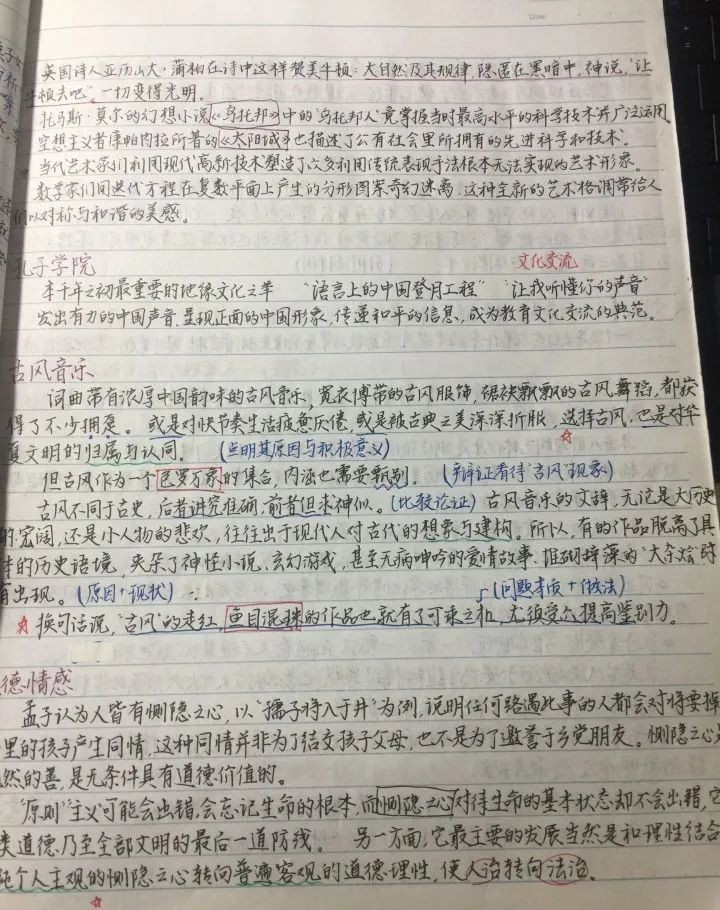 Date
英国诗人亚历山大·蒲柏在诗中这样赞美牛顿：大自然及其规律，隐匿在黑暗中，神说，“让
牛顿去吧”一切变得光明。
托马斯·莫尔的幻想小说《乌托邦》中的‘乌托邦人’竟掌握当时最高水平的科学技术并广泛运用
空想主义者康帕内拉所著的《太阳城》也描述了公有社会里所拥有的先进科学和技术。
当代艺术家们利用现代高新技术塑造了众多利用传统表现手法根本无法实现的艺术形象。
数学家们用迭代方程在复数平面上产生的分形图案奇幻迷离，这种全新的艺术格调带给人
们以对称与和谐的美感。
孔子学院 文化交流
本千年之初最重要的地缘文化之举 “语言上的中国登月工程” “让我听懂你的声音”
发出有力的中国声音，呈现正面的中国形象，传递和平的信息，成为教育文化交流的典范。
古风音乐
词曲带有浓厚中国韵味的古风音乐，宽衣博带的古风服饰，裾袂飘飘的古风舞蹈，都获
得了不少拥趸。或是对快节奏生活疲惫厌倦，或是被古典之美深深折服，选择古风，也是对华
夏文明的归属与认同。（点明其原因与积极意义）
但古风作为一个包罗万象的集合，内涵也需要甄别。（辩证看待‘古风’现象）
古风不同于古史，后者讲究准确，前者但求神似。（比较论证）古风音乐的文辞，无论是大历史
的宏阔，还是小人物的悲欢，往往出于现代人对古代的想象与建构。所以，有的作品脱离了具
体的历史语境，夹杂了神怪小说，玄幻游戏，甚至无病呻吟的爱情故事，堆砌辞藻的‘大杂烩’时
有出现。（原因+现状） （问题本质+做法）
换句话说，“古风”的走红，鱼目混珠的作品也就有了可乘之机，尤须受众提高鉴别力。
德情感
孟子认为人皆有恻隐之心，以“孺子将入于井”为例，说明任何路遇此事的人都会对将要掉
里的孩子产生同情，这种同情并非为了结交孩子父母，也不是为了邀誉于乡党朋友。恻隐之心
然的善，是无条件具有道德价值的。
“原则”主义可能会出错，会忘记生命的根本，而恻隐之心对待生命的基本状态却不会出错，它
类道德乃至全部文明的最后一道防线。 另一方面，它最主要的发展当然是和理性结合
纯个人主观的恻隐之心转向普遍客观的道德理性，使人治转向法治。